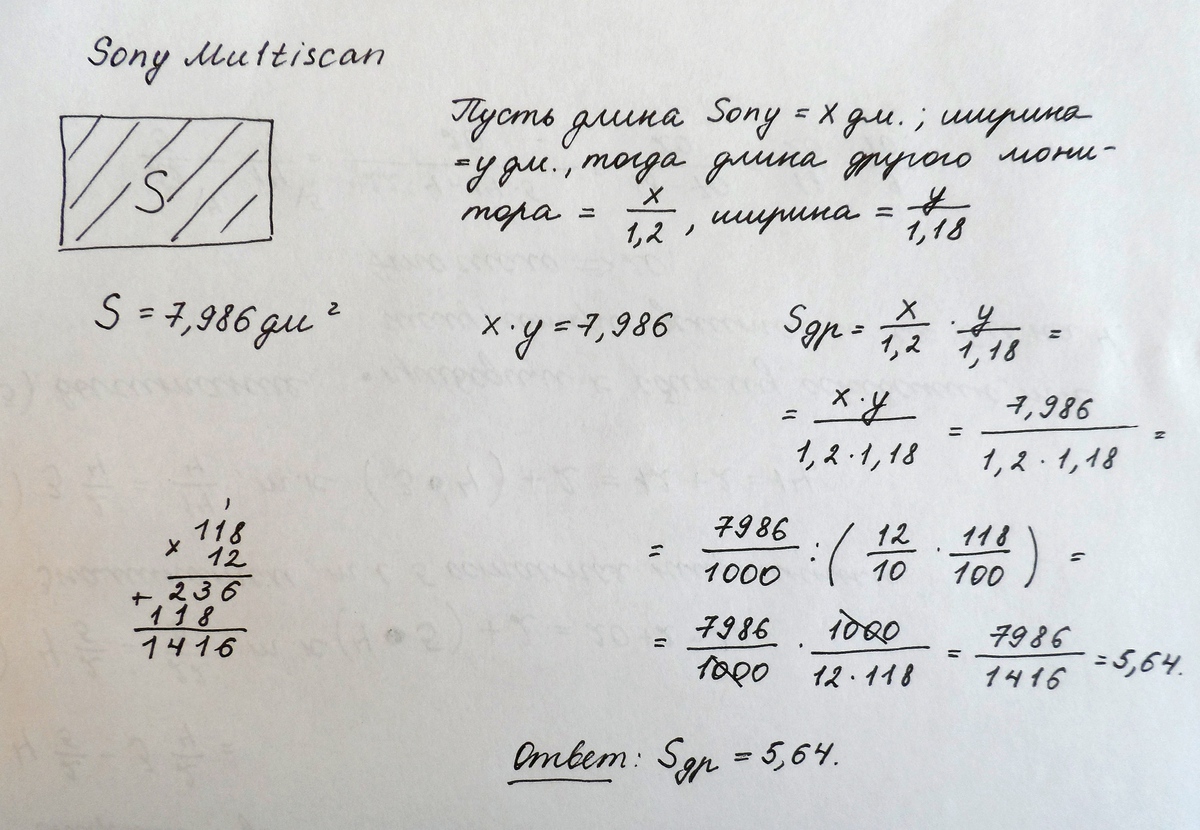 Sony Multiscan
S
Пусть длина Sony = x дм.; ширина
= y дм., тогда длина другого мони-
тора = x/1,2, ширина = y/1,18
S = 7,986 дм²
x · y = 7,986
Sдр = x/1,2 · y/1,18 =
= x · y/1,2 · 1,18 = 7,986/1,2 · 1,18 =
= 7986/1000 : (12/10 · 118/100) =
= 7986/1000 · 1000/12 · 118 = 7986/1416 = 5,64.
118
× 12
236
+ 118
1416
Ответ: Sдр = 5,64.